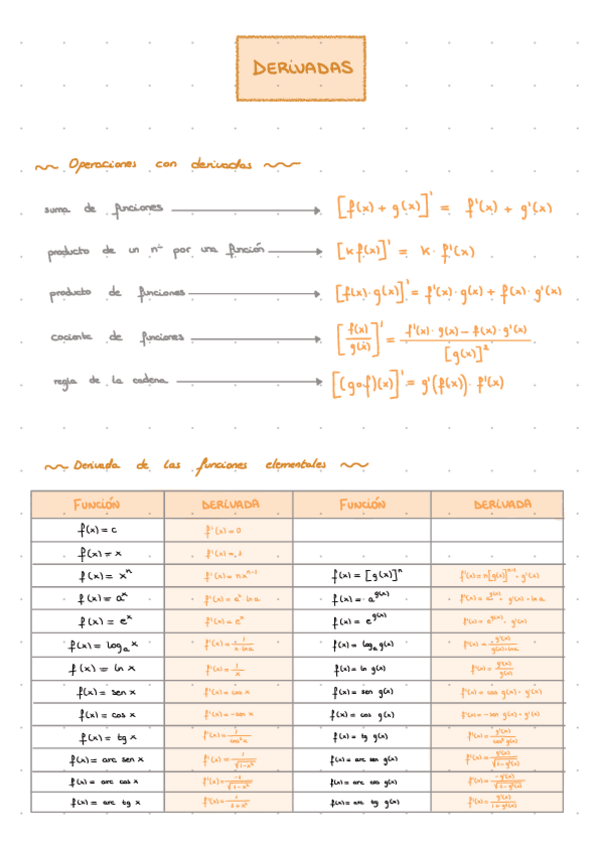 DERIVADAS
Operaciones con derivadas
suma de funciones → [f(x) + g(x)]' = f'(x) + g'(x)
producto de un nº por una función → [k f(x)]' = k · f'(x)
producto de funciones → [f(x)·g(x)]' = f'(x)·g(x) + f(x)·g'(x)
cociente de funciones → [f(x)/g(x)]' = f'(x)·g(x) − f(x)·g'(x) / [g(x)]²
regla de la cadena → [(g∘f)(x)]' = g'(f(x))·f'(x)
Derivada de las funciones elementales
FUNCIÓN DERIVADA FUNCIÓN DERIVADA
f(x) = c f'(x) = 0
f(x) = x f'(x) = 1
f(x) = xⁿ f'(x) = nxⁿ⁻¹ f(x) = [g(x)]ⁿ f'(x) = n[g(x)]ⁿ⁻¹ · g'(x)
f(x) = aˣ f'(x) = aˣ ln a f(x) = a^g(x) f'(x) = a^g(x) · g'(x) · ln a
f(x) = eˣ f'(x) = eˣ f(x) = e^g(x) f'(x) = e^g(x) · g'(x)
f(x) = logₐ x f'(x) = 1/x lna f(x) = logₐ g(x) f'(x) = g'(x)/g(x)·lna
f(x) = ln x f'(x) = 1/x f(x) = ln g(x) f'(x) = g'(x)/g(x)
f(x) = sen x f'(x) = cos x f(x) = sen g(x) f'(x) = cos g(x) · g'(x)
f(x) = cos x f'(x) = −sen x f(x) = cos g(x) f'(x) = −sen g(x) · g'(x)
f(x) = tg x f'(x) = 1/cos² x f(x) = tg g(x) f'(x) = g'(x)/cos² g(x)
f(x) = arc sen x f'(x) = 1/√1−x² f(x) = arc sen g(x) f'(x) = g'(x)/√1−g²(x)
f(x) = arc cos x f'(x) = −1/√1−x² f(x) = arc cos g(x) f'(x) = −g'(x)/√1−g²(x)
f(x) = arc tg x f'(x) = 1/1+x² f(x) = arc tg g(x) f'(x) = g'(x)/1+g²(x)